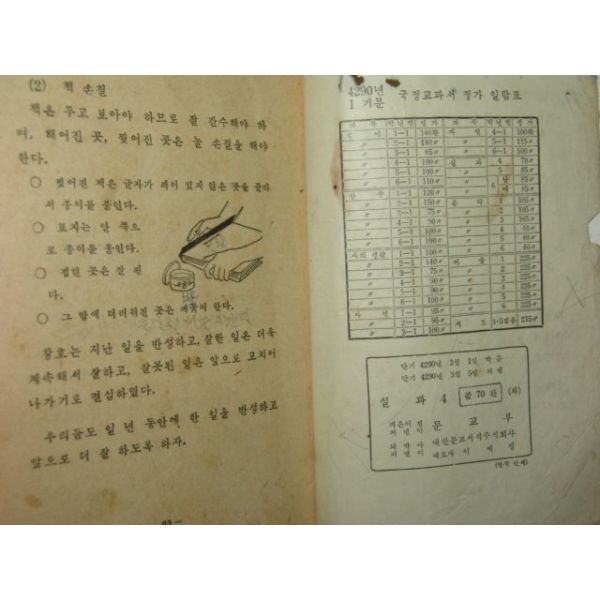 (2) 책 손질
책은 두고 보아야 하므로 잘 간수해야 하
며, 해어진 곳, 찢어진 곳은 늘 손질을 해야
한다.
○ 찢어진 책은 글자가 씌어 있지 않은 곳을 골라
서 종이를 붙인다.
○ 표지는 안 쪽으
로 종이를 붙인다.
○ 접힌 곳은 잘 편
다.
○ 그 밖에 더러워진 곳은 깨끗이 한다.
창호는 지난 일을 반성하고, 잘한 일은 더욱
계속해서 잘하고, 잘못된 일은 앞으로 고치어
나가기로 결심하였다.
우리들도 일 년 동안에 한 일을 반성하고
앞으로 더 잘 하도록 하자.
4290년
1 기분
국정교과서 정가 일람표
과 목 학년별 정가 과 목 학년별 정가
국 어 1-1 140환 자 연 4-1 100환
〃 2-1 120〃 〃 5-1 115〃
〃 3-1 85〃 〃 6-1 100〃
〃 4-1 100〃 실 과 4 70〃
〃 5-1 100〃 〃 5 85〃
〃 6-1 110〃 〃 6 남 85〃
산 수 1-1 120〃 여 85〃
〃 2-1 150〃 음 악 1 105〃
〃 3-1 75〃 〃 2 105〃
〃 4-1 90〃 〃 3 105〃
〃 5-1 100〃 〃 4 40〃
〃 6-1 100〃 〃 5 40〃
사회 생활 1-1 100〃 〃 6 40〃
〃 2-1 140〃 미 술 1 225〃
〃 3-1 75〃 〃 2 225〃
〃 4-1 90〃 〃 3 225〃
〃 5-1 90〃 〃 4 225〃
〃 6-1 100〃 〃 5 225〃
자 연 1-1 95〃 〃 6 225〃
〃 2-1 95〃 지 도 4·5·6용 215〃
〃 3-1 100〃
단기 4290년 3월 1일 박음
단기 4290년 3월 5일 펴냄
실 과 4 값 70 환 (자)
지은이 겸
펴낸이 문 교 부
대한문교서적주식회사
대표자